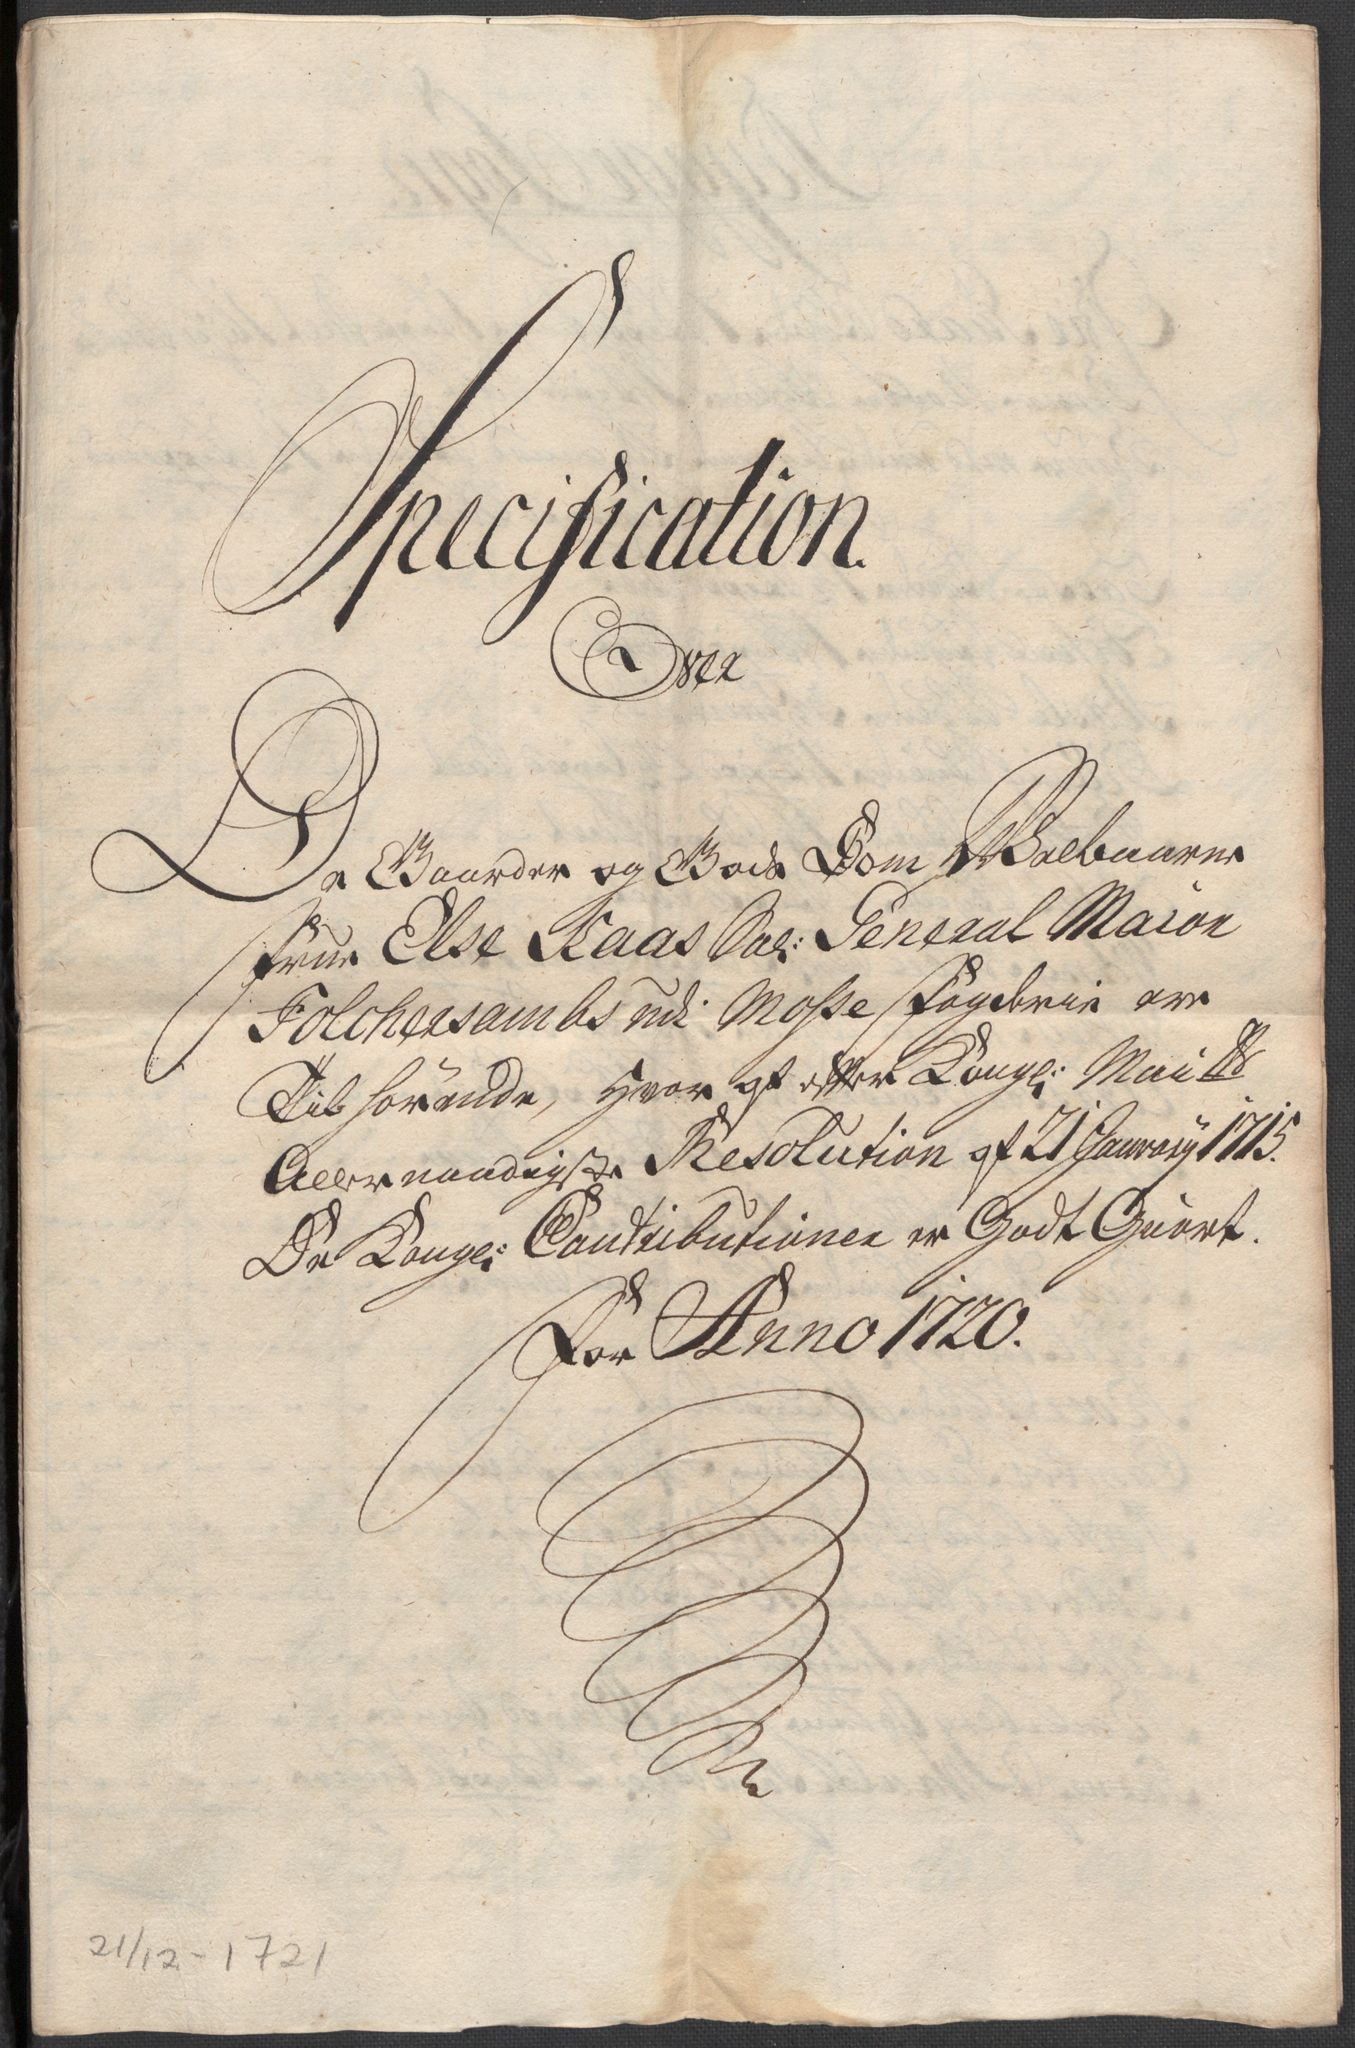 Specification.
Over
De Gaarder og Gods Som Welbaarne
Frue Else Kaas Sal: General Maior
Folchersambs udi Mosse Fogderie ere
Tilhörende, hvor af efter Kongl: Maits
Allernaadigste Resolution af 21 January 1715.
De Kongl: Contributioner er Godt Giort.
For Anno 1720.
21/12 - 1721